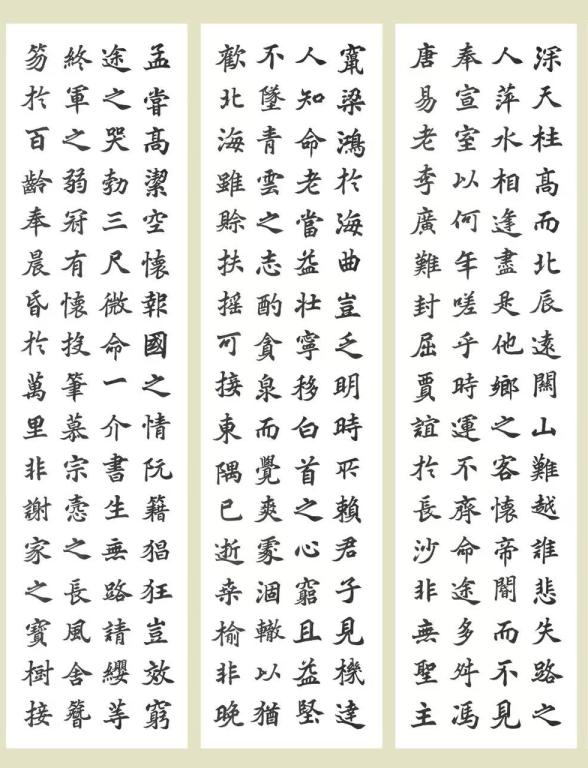 深天柱高而北辰遠關山難越誰悲失路之
人萍水相逢盡是他鄉之客懷帝閽而不見
奉宣室以何年嗟乎時運不齊命途多舛馮
唐易老李廣難封屈賈誼於長沙非無聖主
竄梁鴻於海曲豈乏明時所賴君子見機達
人知命老當益壯寧移白首之心窮且益堅
不墜青雲之志酌貪泉而覺爽處涸轍以猶
歡北海雖賒扶搖可接東隅已逝桑榆非晚
孟嘗高潔空懷報國之情阮籍猖狂豈效窮
途之哭勃三尺微命一介書生無路請纓等
終軍之弱冠有懷投筆慕宗愨之長風舍簪
笏於百齡奉晨昏於萬里非謝家之寶樹接